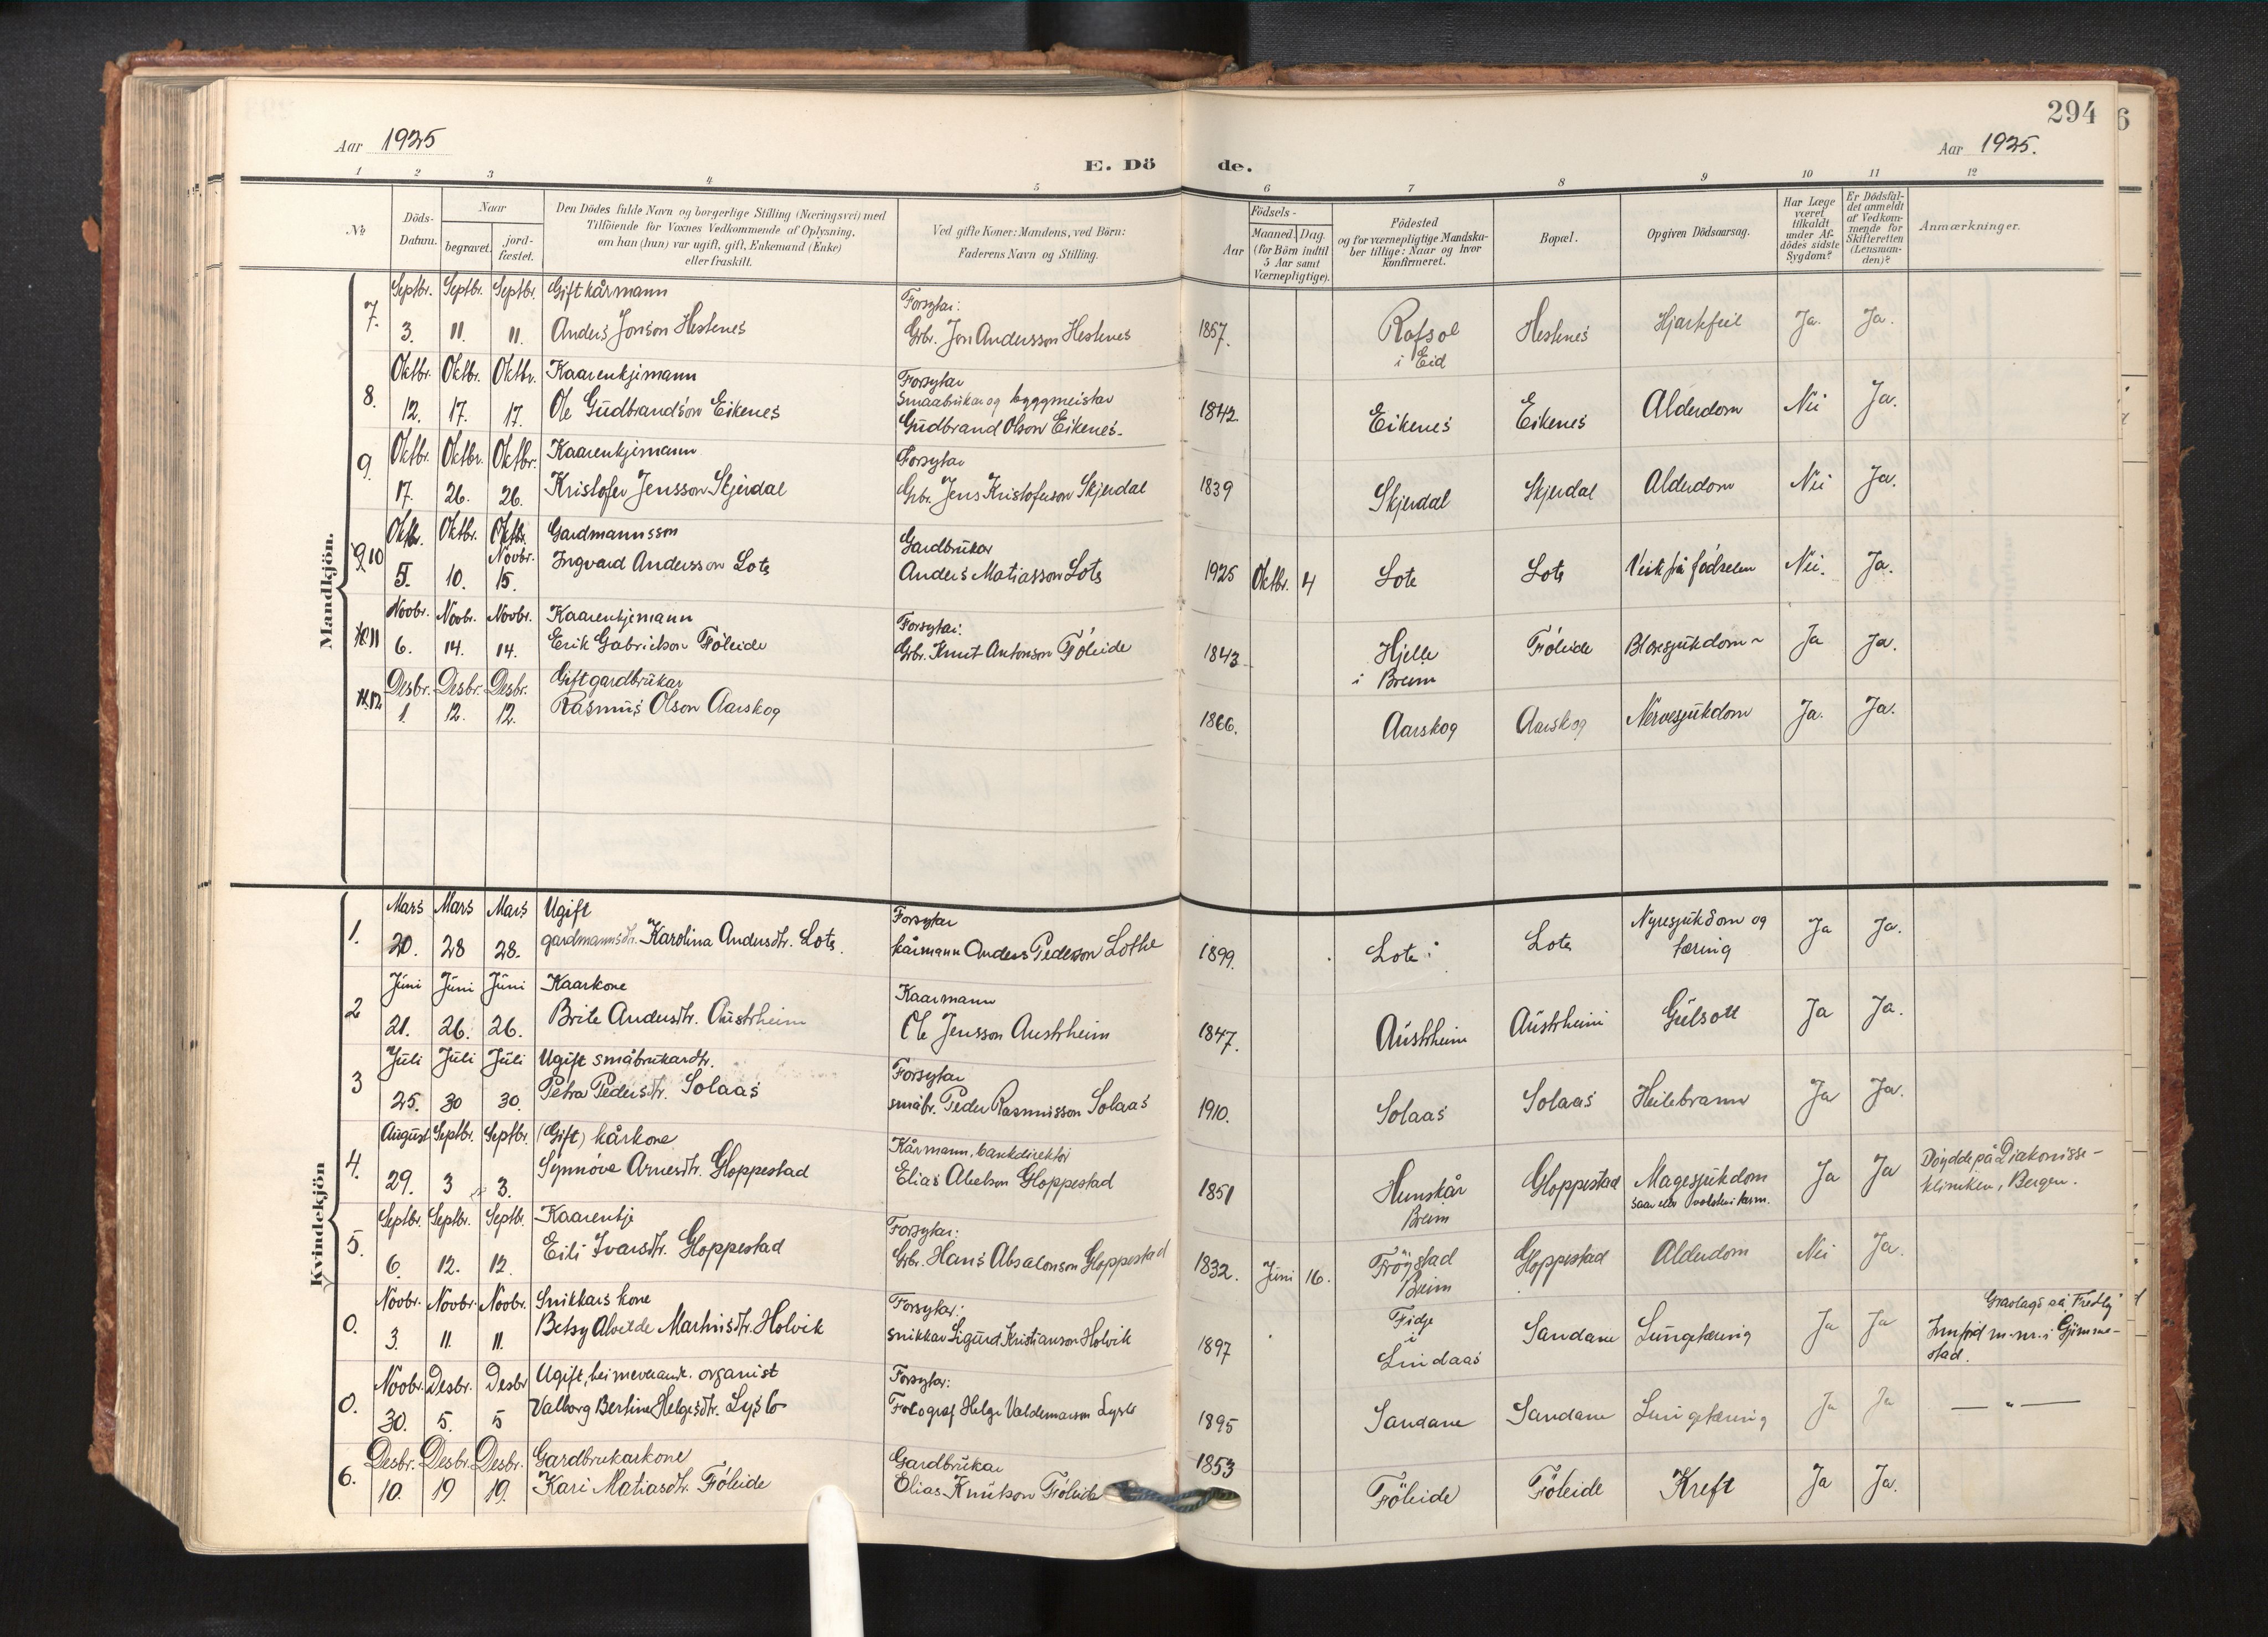 294
Aar 1925
Aar 1925.
E. Dö de.
1 2 3 4 5 6 7 8 9 10 11 12
No
Döds-Datum.
Naar
begravet.
jord-fæstet.
Den Dödes fulde Navn og borgerlige Stilling (Næringsvei) med
Tilföiende for Voxnes Vedkommende af Oplysning,
om han (hun) var ugift, gift, Enkemand (Enke)
eller fraskilt.
Ved gifte Koner: Mandens, ved Börn:
Faderens Navn og Stilling.
Födsels-
Aar
Maaned. Dag.
(for Börn indtil
5 Aar samt
Værnepligtige).
Födested
og for værnepligtige Mandska-
ber tillige: Naar og hvor
konfirmeret.
Bopæl.
Opgiven Dödsaarsag.
Har Læge
været
tilkaldt
under Af-
dödes sidste
Sygdom?
Er Dödsfal-
det anmeldt
af Vedkom-
mende for
Skifteretten
(Lensman-
den)?
Anmærkninger.
Mandkjön.
7. Septbr. 3. Septbr. 11. Septbr. 11.
Gift kårmann
Anders Jonson Hestenes
Forsytar:
Grb. Jon Andersson Hestenes
1857.
i Eid
Hestenes
Hjartefeil
Ja. Ja.
8. Oktbr. 12. Oktbr. 17. Oktbr. 17.
Kaarenkjemann
Ole Gudbrandson Eikenes
Forsytar
Smaabrukar og byggmeistar
Gudbrand Olson Eikenes.
1842.
Eikenes
Eikenes
Alderdom
Nei Ja.
9. Oktbr. 17. Oktbr. 26. Oktbr. 26.
Kaarenkjemann
Kristofer Jensson Skjerdal
Forsytar
Grb. Jens Kristoferson Skjerdal
1839
Skjerdal
Skjerdal
Alderdom
Nei Ja.
10 Oktbr. 5. Oktbr. 10. Novbr. 15.
Gardmannsson
Ingvard Andersson Lote
Gardbrukar
Anders Matiasson Lote
1925 Oktbr. 4
Lote
Lote
Veik frå fødselen
Nei. Ja.
11 Novbr. 6. Novbr. 14. Novbr. 14.
Kaarenkjemann
Erik Gabrielson Föleide
Forsytar:
Grb. Knut Antonson Föleide
1843
Hjelle
i Breim
Föleide
Blæresjukdom
Ja Ja.
12 Desbr. 1. Desbr. 12. Desbr. 12.
Gift gardbrukar
Rasmus Olson Aarskog
1866.
Aarskog
Aarskog
Nervesjukdom
Ja. Ja.
Kvindekjön
1. Mars 20. Mars 28 Mars 28.
Ugift
gardmannsdtr. Karolina Andersdtr. Lote.
Forsytar
kårmann Anders Pederson Lothe
1899.
Lote
Lote
Nyresjukdom og
tæring
Ja Ja.
2 Juni 21. Juni 26. Juni 26.
Kaarkone
Brite Andersdtr. Austrheim
Kaarmann
Ole Jensson Austrheim
1847.
Austrheim
Austrheim
Gulsott
Ja Ja.
3 Juli 25. Juli 30 Juli 30.
Ugift småbrukardtr.
Petra Pedersdtr. Solaas
Forsytar
småbr. Peder Rasmusson Solaas
1910.
Solaas
Solaas
Heilebrann
Ja Ja.
4. August 29. Septbr. 3 Septbr. 3.
(Gift) kårkone
Synnöve Arnesdtr. Gloppestad
Kårmann, bankdirektör
Elias Abelson Gloppestad
1851
Hunskår
Breim
Gloppestad
Magesjukdom
Ja Ja
Döydde på Diakonisse-
kliniken, Bergen.
5. Septbr. 6. Septbr. 12. Septbr. 12.
Kaarenkje
Eili Ivarsdtr. Gloppestad
Forsytar:
Grb. Hans Absalonson Gloppestad
1832. Juni 16.
Fröystad
Breim
Gloppestad
Alderdom
Nei Ja.
0. Novbr. 3. Novbr. 11. Novbr. 11.
Snikkars kone
Betsy Alvilde Martinsdtr. Holvik
Forsytar:
snikkar Sigurd Kristianson Holvik
1897
i
Lindaas
Sandane
Lungetæring
Ja Ja
Gravlagd på "Fredly"
Innførd m. nr. i Gjimme-
stad.
0. Novbr. 30. Desbr. 5. Desbr 5
Ugift, heimeverande organist
Valborg Bertine Helgesdtr. Lyslo
Forsytar:
Fotograf Helge Valdemarson Lyslo
1895
Sandane
Sandane
Lungetæring
Ja Ja
— " —
6. Desbr. 10. Desbr. 19 Desbr. 19.
Gardbrukarkone
Kari Matiasdtr. Föleide
Gardbrukar
Elias Knutson Föleide
1853
Föleide
Föleide
Kreft
Ja Ja.